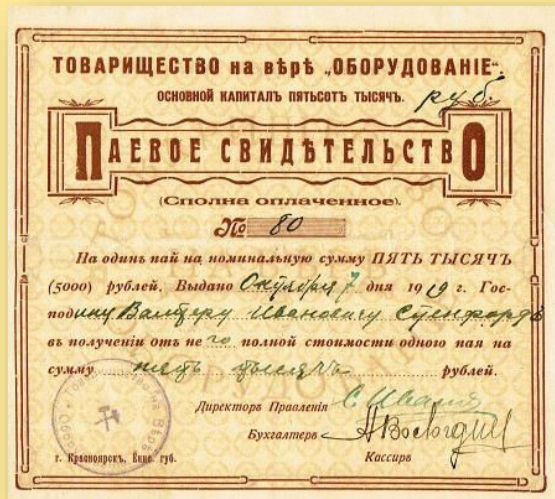 ТОВАРИЩЕСТВО на вѣрѣ „ОБОРУДОВАНIЕ“.
ОСНОВНОЙ КАПИТАЛЪ ПЯТЬСОТЪ ТЫСЯЧЪ. руб.
ПАЕВОЕ СВИДѢТЕЛЬСТВО
(Сполна оплаченное).
№ 80
На одинъ пай на номинальную сумму ПЯТЬ ТЫСЯЧЪ
(5000) рублей. Выдано Октября 7 дня 1919 г. Гос-
подину Валтеру Ивановичу
въ полученiи отъ него полной стоимости одного пая на
сумму пять тысячъ рублей.
Директоръ Правленiя
Бухгалтеръ
г. Красноярскъ. Енис. губ.
Кассиръ